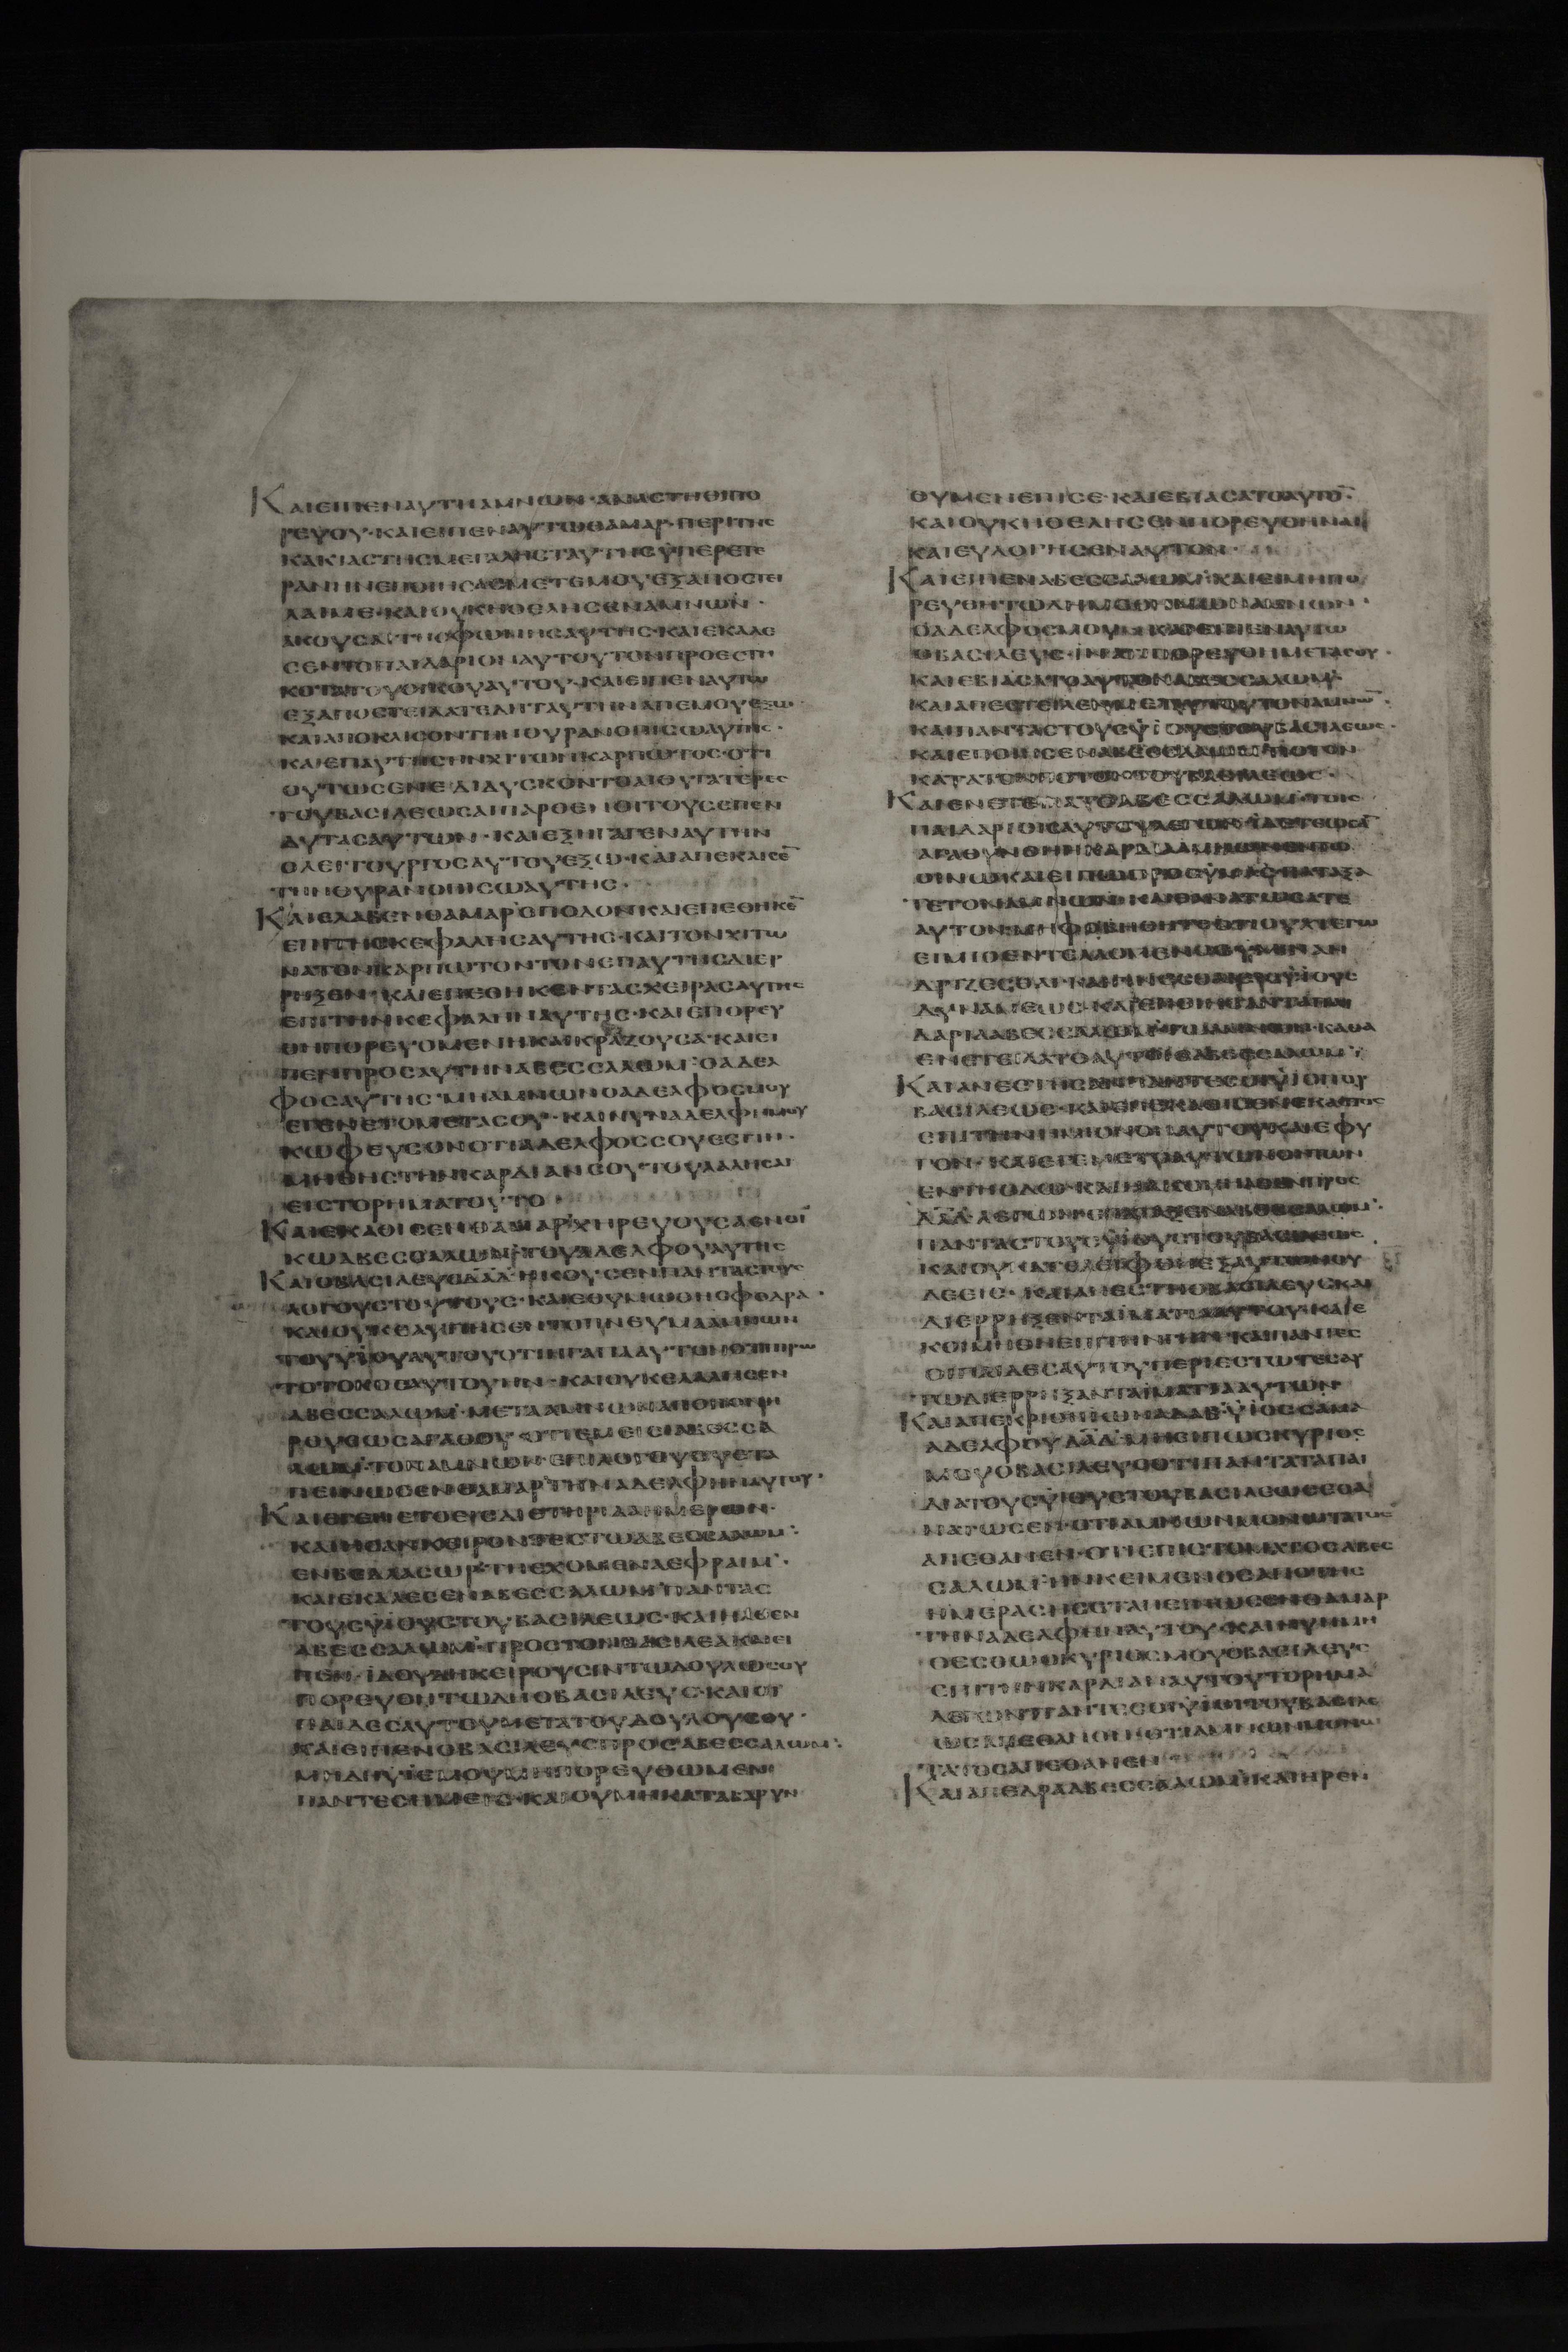 ΚΑΙΕΙΠΕΝΑΥΤΗΑΜΝΩΝ·ΑΝΑΣΤΗΘΙΠΟ
ΡΕΥΟΥ·ΚΑΙΕΙΠΕΝΑΥΤΩΘΑΜΑΡ·ΠΕΡΙΤΗΣ
ΚΑΚΙΑΣΤΗΣΜΕΓΑΛΗΣΤΑΥΤΗΣΫΠΕΡΕΤΕ
ΡΑΝΗΝΕΠΟΙΗΣΑΣΜΕΤΕΜΟΥΕΞΑΠΟΣΤΕΙ
ΛΑΙΜΕ·ΚΑΙΟΥΚΗΘΕΛΗΣΕΝΑΜΝΩΝ·
ΑΚΟΥΣΑΙΤΗΣΦΩΝΗΣΑΥΤΗΣ·ΚΑΙΕΚΑΛΕ
ΣΕΝΤΟΠΑΙΔΑΡΙΟΝΑΥΤΟΥΤΟΝΠΡΟΕΣΤΗ
ΚΟΤΑΤΟΥΟΙΚΟΥΑΥΤΟΥ·ΚΑΙΕΙΠΕΝΑΥΤΩ
ΕΞΑΠΟΣΤΕΙΛΑΤΕΔΗΤΑΥΤΗΝΑΠΕΜΟΥΕΞΩ·
ΚΑΙΑΠΟΚΛΙΣΟΝΤΗΝΘΥΡΑΝΟΠΙΣΩΑΥΤΗΣ·
ΚΑΙΕΠΑΥΤΗΣΗΝΧΙΤΩΝΚΑΡΠΩΤΟΣ·ΟΤΙ
ΟΥΤΩΣΕΝΕΔΙΔΥΣΚΟΝΤΟΑΙΘΥΓΑΤΕΡΕΣ
ΤΟΥΒΑΣΙΛΕΩΣΑΙΠΑΡΘΕΝΟΙΤΟΥΣΕΠΕΝ
ΔΥΤΑΣΑΥΤΩΝ·ΚΑΙΕΞΗΓΑΓΕΝΑΥΤΗΝ
ΟΛΕΙΤΟΥΡΓΟΣΑΥΤΟΥΕΞΩ·ΚΑΙΑΠΕΚΛΙΣΕ̅
ΤΗΝΘΥΡΑΝΟΠΙΣΩΑΥΤΗΣ·
ΚΑΙΕΛΑΒΕΝΘΑΜΑΡΣΠΟΔΟΝΚΑΙΕΠΕΘΗΚΕ̅
ΕΠΙΤΗΣΚΕΦΑΛΗΣΑΥΤΗΣ·ΚΑΙΤΟΝΧΙΤΩ
ΝΑΤΟΝΚΑΡΠΩΤΟΝΤΟΝΕΠΑΥΤΗΣΔΙΕΡ
ΡΗΞΕΝ·ΚΑΙΕΠΕΘΗΚΕΝΤΑΣΧΕΙΡΑΣΑΥΤΗΣ
ΕΠΙΤΗΝΚΕΦΑΛΗΝΑΥΤΗΣ·ΚΑΙΕΠΟΡΕΥ
ΘΗΠΟΡΕΥΟΜΕΝΗΚΑΙΚΡΑΖΟΥΣΑ·ΚΑΙΕΙ
ΠΕΝΠΡΟΣΑΥΤΗΝΑΒΕΣΣΑΛΩΜ·ΟΑΔΕΛ
ΦΟΣΑΥΤΗΣ·ΜΗΑΜΝΩΝΟΑΔΕΛΦΟΣΜΟΥ
ΕΓΕΝΕΤΟΜΕΤΑΣΟΥ·ΚΑΙΝΥΝΑΔΕΛΦΗΜΟΥ
ΚΩΦΕΥΣΟΝΟΤΙΑΔΕΛΦΟΣΣΟΥΕΣΤΙΝ·
ΜΗΘΗΣΤΗΝΚΑΡΔΙΑΝΣΟΥΤΟΥΛΑΛΗΣΑΙ
ΕΙΣΤΟΡΗΜΑΤΟΥΤΟ·
ΚΑΙΕΚΑΘΙΣΕΝΘΑΜΑΡΧΗΡΕΥΟΥΣΑΕΝΟΙ
ΚΩΑΒΕΣΣΑΛΩΜΤΟΥΑΔΕΛΦΟΥΑΥΤΗΣ
ΚΑΙΟΒΑΣΙΛΕΥΣΔΑΔΗΚΟΥΣΕΝΠΑΝΤΑΣΤΟΥΣ
ΛΟΓΟΥΣΤΟΥΤΟΥΣ·ΚΑΙΕΘΥΜΩΘΗΣΦΟΔΡΑ·
ΚΑΙΟΥΚΕΛΥΠΗΣΕΝΤΟΠΝΕΥΜΑΑΜΝΩΝ
ΤΟΥΫΙΟΥΑΥΤΟΥΟΤΙΗΓΑΠΑΑΥΤΟΝΟΤΙΠΡΩ
ΤΟΤΟΚΟΣΑΥΤΟΥΗΝ·ΚΑΙΟΥΚΕΛΑΛΗΣΕΝ
ΑΒΕΣΣΑΛΩΜ·ΜΕΤΑΑΜΝΩΝΑΠΟΠΟΝΗ
ΡΟΥΕΩΣΑΓΑΘΟΥ·ΟΤΙΕΜΕΙΣΕΙΑΒΕΣΣΑ
ΛΩΜ·ΤΟΝΑΜΝΩΝ·ΕΠΙΛΟΓΟΥΟΥΕΤΑ
ΠΕΙΝΩΣΕΝΘΑΜΑΡΤΗΝΑΔΕΛΦΗΝΑΥΤΟΥ·
ΚΑΙΕΓΕΝΕΤΟΕΙΣΔΙΕΤΗΡΙΔΑΗΜΕΡΩΝ·
ΚΑΙΗΣΑΝΚΕΙΡΟΝΤΕΣΤΩΑΒΕΣΣΑΛΩΜ·
ΕΝΒΕΛΑΣΩΡΤΗΕΧΟΜΕΝΑΕΦΡΑΙΜ·
ΚΑΙΕΚΑΛΕΣΕΝΑΒΕΣΣΑΛΩΜΠΑΝΤΑΣ
ΤΟΥΣΫΙΟΥΣΤΟΥΒΑΣΙΛΕΩΣ·ΚΑΙΗΛΘΕΝ
ΑΒΕΣΣΑΛΩΜ·ΠΡΟΣΤΟΝΒΑΣΙΛΕΑΚΑΙΕΙ
ΠΕΝ·ΙΔΟΥΔΗΚΕΙΡΟΥΣΙΝΤΩΔΟΥΛΩΣΟΥ
ΠΟΡΕΥΘΗΤΩΔΗΟΒΑΣΙΛΕΥΣ·ΚΑΙΟΙ
ΠΑΙΔΕΣΑΥΤΟΥΜΕΤΑΤΟΥΔΟΥΛΟΥΣΟΥ·
ΚΑΙΕΙΠΕΝΟΒΑΣΙΛΕΥΣΠΡΟΣΑΒΕΣΣΑΛΩΜ·
ΜΗΔΗΫΙΕΜΟΥΜΗΠΟΡΕΥΘΩΜΕΝ
ΠΑΝΤΕΣΗΜΕΙΣ·ΚΑΙΟΥΜΗΚΑΤΑΒΑΡΥΝ
ΘΥΜΕΝΕΠΙΣΕ·ΚΑΙΕΒΙΑΣΑΤΟΑΥΤΟ̅·
ΚΑΙΟΥΚΗΘΕΛΗΣΕΝΠΟΡΕΥΘΗΝΑΙ
ΚΑΙΕΥΛΟΓΗΣΕΝΑΥΤΟΝ·
ΚΑΙΕΙΠΕΝΑΒΕΣΣΑΛΩΜ·ΚΑΙΕΙΜΗΠΟ
ΡΕΥΘΗΤΩΔΗΜΕΘΗΜΩΝΑΜΝΩΝ·
ΟΑΔΕΛΦΟΣΜΟΥ·ΚΑΙΕΙΠΕΝΑΥΤΩ
ΟΒΑΣΙΛΕΥΣ·ΙΝΑΤΙΠΟΡΕΥΘΗΜΕΤΑΣΟΥ·
ΚΑΙΕΒΙΑΣΑΤΟΑΥΤΟΝΑΒΕΣΣΑΛΩΜ·
ΚΑΙΑΠΕΣΤΕΙΛΕΝΜΕΤΑΥΤΟΥΤΟΝΑΜΝΩ̅·
ΚΑΙΠΑΝΤΑΣΤΟΥΣΫΙΟΥΣΤΟΥΒΑΣΙΛΕΩΣ·
ΚΑΙΕΠΟΙΗΣΕΝΑΒΕΣΣΑΛΩΜΠΟΤΟΝ
ΚΑΤΑΤΟΝΠΟΤΟΝΤΟΥΒΑΣΙΛΕΩΣ·
ΚΑΙΕΝΕΤΕΙΛΑΤΟΑΒΕΣΣΑΛΩΜ·ΤΟΙΣ
ΠΑΙΔΑΡΙΟΙΣΑΥΤΟΥΛΕΓΩΝ·ΙΔΕΤΕΩΣΑ̅
ΑΓΑΘΥΝΘΗΗΚΑΡΔΙΑΑΜΝΩΝΕΝΤΩ
ΟΙΝΩΚΑΙΕΙΠΩΠΡΟΣΫΜΑΣΠΑΤΑΞΑ
ΤΕΤΟΝΑΜΝΩΝ·ΚΑΙΘΑΝΑΤΩΣΑΤΕ
ΑΥΤΟΝ·ΜΗΦΟΒΗΘΗΤΕΟΤΙΟΥΧΙΕΓΩ
ΕΙΜΙΟΕΝΤΕΛΛΟΜΕΝΟΣΫΜΙΝΑΝ
ΔΡΙΖΕΣΘΑΙ·ΚΑΙΓΙΝΕΣΘΑΙΕΙΣΫΙΟΥΣ
ΔΥΝΑΜΕΩΣ·ΚΑΙΕΠΟΙΗΣΑΝΤΑΠΑΙ
ΔΑΡΙΑΑΒΕΣΣΑΛΩΜ·ΤΩΑΜΝΩΝ·ΚΑΘΑ
ΕΝΕΤΕΙΛΑΤΟΑΥΤΟΙΣΑΒΕΣΣΑΛΩΜ·
ΚΑΙΑΝΕΣΤΗΣΑΝΠΑΝΤΕΣΟΙΫΙΟΙΤΟΥ
ΒΑΣΙΛΕΩΣ·ΚΑΙΕΠΕΚΑΘΙΣΕΝΕΚΑΣΤΟΣ
ΕΠΙΤΗΝΗΜΙΟΝΟΝΑΥΤΟΥΚΑΙΕΦΥ
ΓΟΝ·ΚΑΙΕΓΕΝΕΤΟΑΥΤΩΝΟΝΤΩΝ
ΕΝΤΗΟΔΩ·ΚΑΙΗΑΚΟΗΗΛΘΕΝΠΡΟΣ
ΔΑΔ·ΛΕΓΩΝΕΠΑΤΑΞΕΝΑΒΕΣΣΑΛΩΜ·
ΠΑΝΤΑΣΤΟΥΣΫΙΟΥΣΤΟΥΒΑΣΙΛΕΩΣ·
ΚΑΙΟΥΚΑΤΕΛΕΙΦΘΗΕΞΑΥΤΩΝΟΥ
ΔΕΕΙΣ·ΚΑΙΑΝΕΣΤΗΟΒΑΣΙΛΕΥΣΚΑΙ
ΔΙΕΡΡΗΞΕΝΤΑΙΜΑΤΙΑΑΥΤΟΥ·ΚΑΙΕ
ΚΟΙΜΗΘΗΕΠΙΤΗΝΓΗΝ·ΚΑΙΠΑΝΤΕΣ
ΟΙΠΑΙΔΕΣΑΥΤΟΥΠΕΡΙΕΣΤΩΤΕΣΑΥ
ΤΩΔΙΕΡΡΗΞΑΝΤΑΙΜΑΤΙΑΑΥΤΩΝ·
ΚΑΙΑΠΕΚΡΙΘΗΙΩΝΑΔΑΒ·ΫΙΟΣΣΑΜΑ
ΑΔΕΛΦΟΥΔΑΔ·ΜΗΕΙΠΩΣΚΥΡΙΟΣ
ΜΟΥΟΒΑΣΙΛΕΥΣΟΤΙΠΑΝΤΑΤΑΠΑΙ
ΔΙΑΤΟΥΣΫΙΟΥΣΤΟΥΒΑΣΙΛΕΩΣΕΘΑ
ΝΑΤΩΣΕΝ·ΟΤΙΑΜΝΩΝΜΟΝΩΤΑΤΟΣ
ΑΠΕΘΑΝΕΝ·ΟΤΙΕΠΙΣΤΟΜΑΤΟΣΑΒΕΣ
ΣΑΛΩΜΗΝΚΕΙΜΕΝΟΣΑΠΟΤΗΣ
ΗΜΕΡΑΣΗΣΕΤΑΠΕΙΝΩΣΕΝΘΑΜΑΡ
ΤΗΝΑΔΕΛΦΗΝΑΥΤΟΥ·ΚΑΙΝΥΝΜΗ
ΘΕΣΘΩΟΚΥΡΙΟΣΜΟΥΟΒΑΣΙΛΕΥΣ
ΕΠΙΤΗΝΚΑΡΔΙΑΝΑΥΤΟΥΤΟΡΗΜΑ
ΛΕΓΩΝΠΑΝΤΕΣΟΙΫΙΟΙΤΟΥΒΑΣΙΛΕ
ΩΣΑΠΕΘΑΝΟΝ·ΟΤΙΑΜΝΩΝΜΟΝΩ
ΤΑΤΟΣΑΠΕΘΑΝΕΝ
ΚΑΙΑΠΕΔΡΑΑΒΕΣΣΑΛΩΜ·ΚΑΙΗΡΕΝ